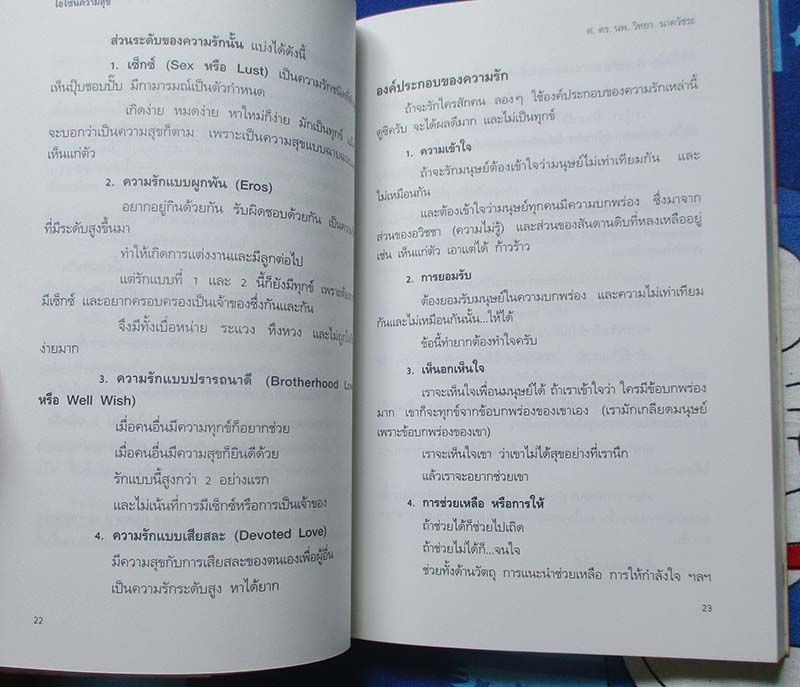 โอโซนความสุข
ส่วนระดับของความรักนั้น แบ่งได้ดังนี้
1. เซ็กซ์ (Sex หรือ Lust) เป็นความรักชนิดที่
เห็นปุ๊บชอบปั๊บ มีกามารมณ์เป็นตัวกำหนด
เกิดง่าย หมดง่าย หาใหม่ก็ง่าย มักเป็นทุกข์
จะบอกว่าเป็นความสุขก็ตาม เพราะเป็นความสุขแบบฉาบฉวย
เห็นแก่ตัว
2. ความรักแบบผูกพัน (Eros)
อยากอยู่กินด้วยกัน รับผิดชอบด้วยกัน เป็นความ
ที่มีระดับสูงขึ้นมา
ทำให้เกิดการแต่งงานและมีลูกต่อไป
แต่รักแบบที่ 1 และ 2 นี้ก็ยังมีทุกข์ เพราะต้อง
มีเซ็กซ์ และอยากครอบครองเป็นเจ้าของซึ่งกันและกัน
จึงมีทั้งเบื่อหน่าย ระแวง หึงหวง และไม่ถูกใจ
ง่ายมาก
3. ความรักแบบปรารถนาดี (Brotherhood Love
หรือ Well Wish)
เมื่อคนอื่นมีความทุกข์ก็อยากช่วย
เมื่อคนอื่นมีความสุขก็ยินดีด้วย
รักแบบนี้สูงกว่า 2 อย่างแรก
และไม่เน้นที่การมีเซ็กซ์หรือการเป็นเจ้าของ
4. ความรักแบบเสียสละ (Devoted Love)
มีความสุขกับการเสียสละของตนเองเพื่อผู้อื่น
เป็นความรักระดับสูง หาได้ยาก
22
ศ. ดร. นพ. วิทยา นาควัชระ
องค์ประกอบของความรัก
ถ้าจะรักใครสักคน ลองๆ ใช้องค์ประกอบของความรักเหล่านี้
ดูซิครับ จะได้ผลดีมาก และไม่เป็นทุกข์
1. ความเข้าใจ
ถ้าจะรักมนุษย์ต้องเข้าใจว่ามนุษย์ไม่เท่าเทียมกัน และ
ไม่เหมือนกัน
และต้องเข้าใจว่ามนุษย์ทุกคนมีความบกพร่อง ซึ่งมาจาก
ส่วนของอวิชชา (ความไม่รู้) และส่วนของสันดานดิบที่หลงเหลืออยู่
เช่น เห็นแก่ตัว เอาแต่ได้ ก้าวร้าว
2. การยอมรับ
ต้องยอมรับมนุษย์ในความบกพร่อง และความไม่เท่าเทียม
กันและไม่เหมือนกันนั้น...ให้ได้
ข้อนี้ทำยากต้องทำใจครับ
3. เห็นอกเห็นใจ
เราจะเห็นใจเพื่อนมนุษย์ได้ ถ้าเราเข้าใจว่า ใครมีข้อบกพร่อง
มาก เขาก็จะทุกข์จากข้อบกพร่องของเขาเอง (เรามักเกลียดมนุษย์
เพราะข้อบกพร่องของเขา)
เราจะเห็นใจเขา ว่าเขาไม่ได้สุขอย่างที่เรานึก
แล้วเราจะอยากช่วยเขา
4. การช่วยเหลือ หรือการให้
ถ้าช่วยได้ก็ช่วยไปเถิด
ถ้าช่วยไม่ได้ก็...จนใจ
ช่วยทั้งด้านวัตถุ การแนะนำช่วยเหลือ การให้กำลังใจ ฯลฯ
23